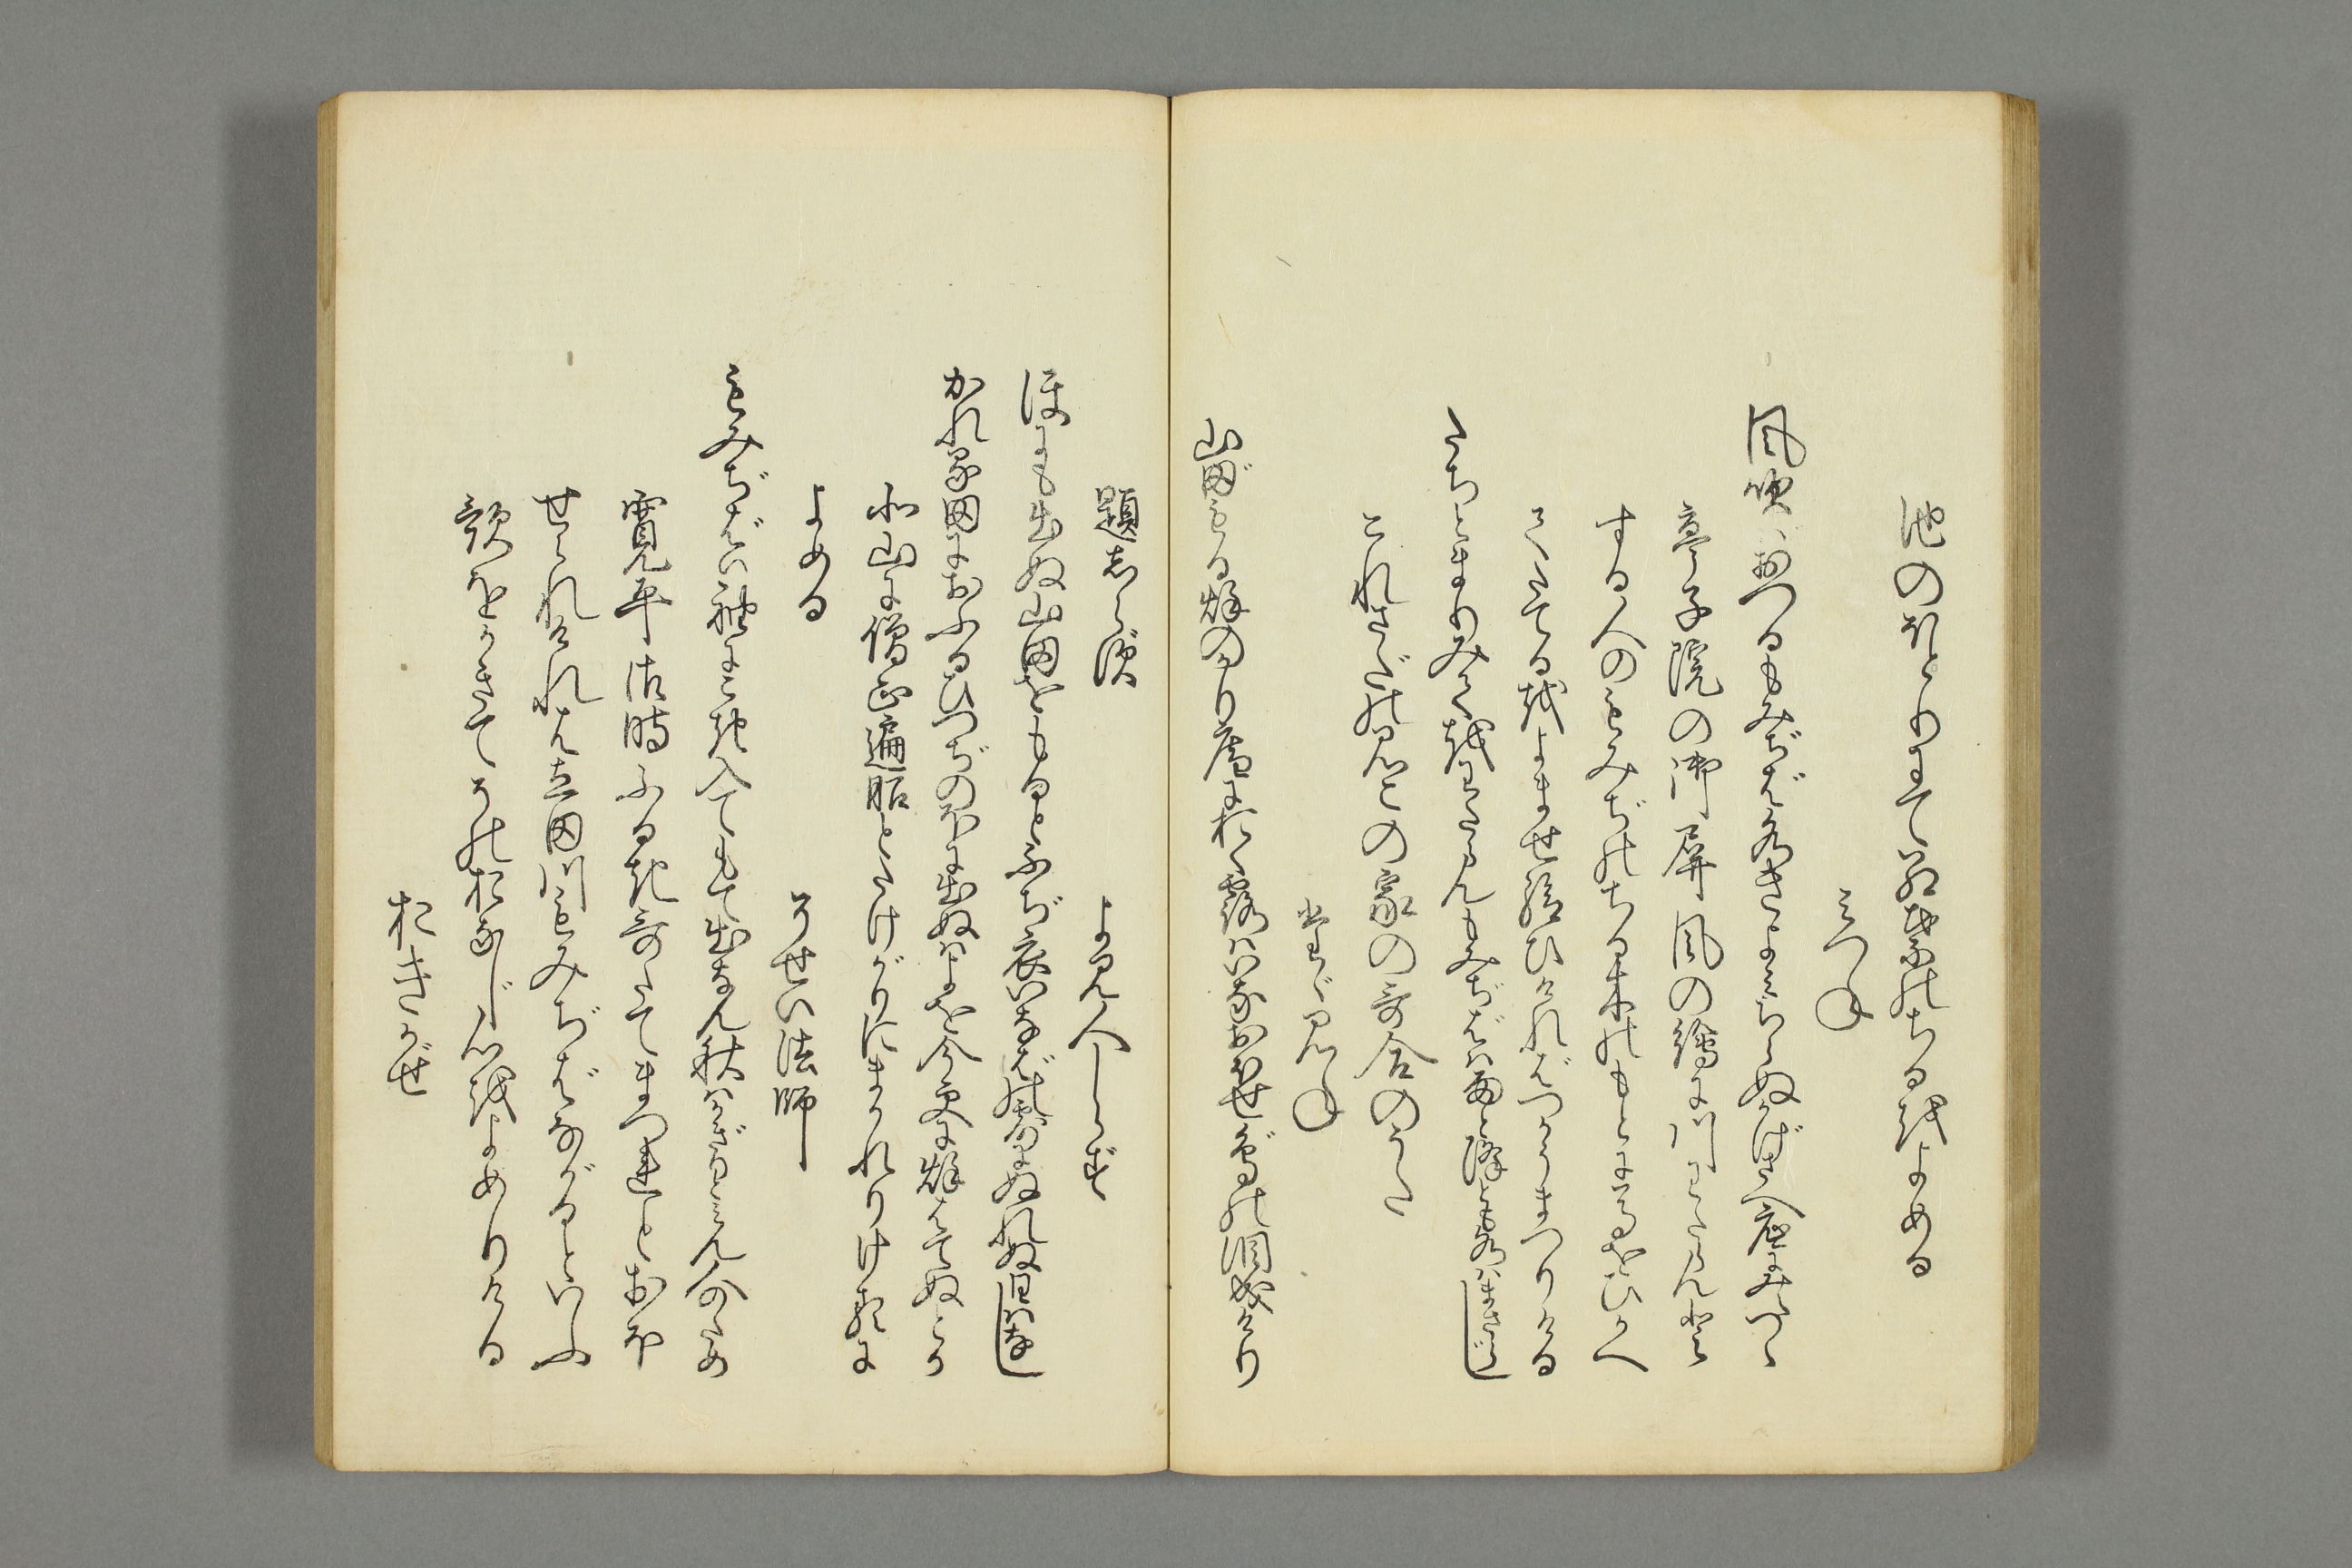 池のほとりにて紅葉のちるをよめる
みつね
風吹ばおつるもみぢば水きよみちらぬかげさへ底にみえつゝ
亭子院の御屏風の繪に川わたらんと
する人のもみぢのちる木のもとに馬をひかへ
てたてるをよませ給ひければつかうまつりける
たちとまりみてをわたらんもみぢばは雨と降とも水はまさらじ
これさだのみこの家の哥合のうた
たゞみね
山田もる秋のかり庵におく露はいなおほせ鳥の涙成けり
題しらず
よみ人しらず
ほにも出ぬ山田をもるとふぢ衣いなばの露にぬれぬ日はなし
かれる田におふるひつぢのほに出ぬはよを今更に秋はてぬとか
北山に僧正遍昭とたけがりにまかれりけるに
よめる
そせい法師
もみぢばゝ袖にこき入てもて出なん秋はかぎりとみん人のため
寛平御時ふるき哥たてまつれとおほ
せられければ立田川もみぢばながるといふ
歌をかきてその おなじ心をよめりける
おきかぜ